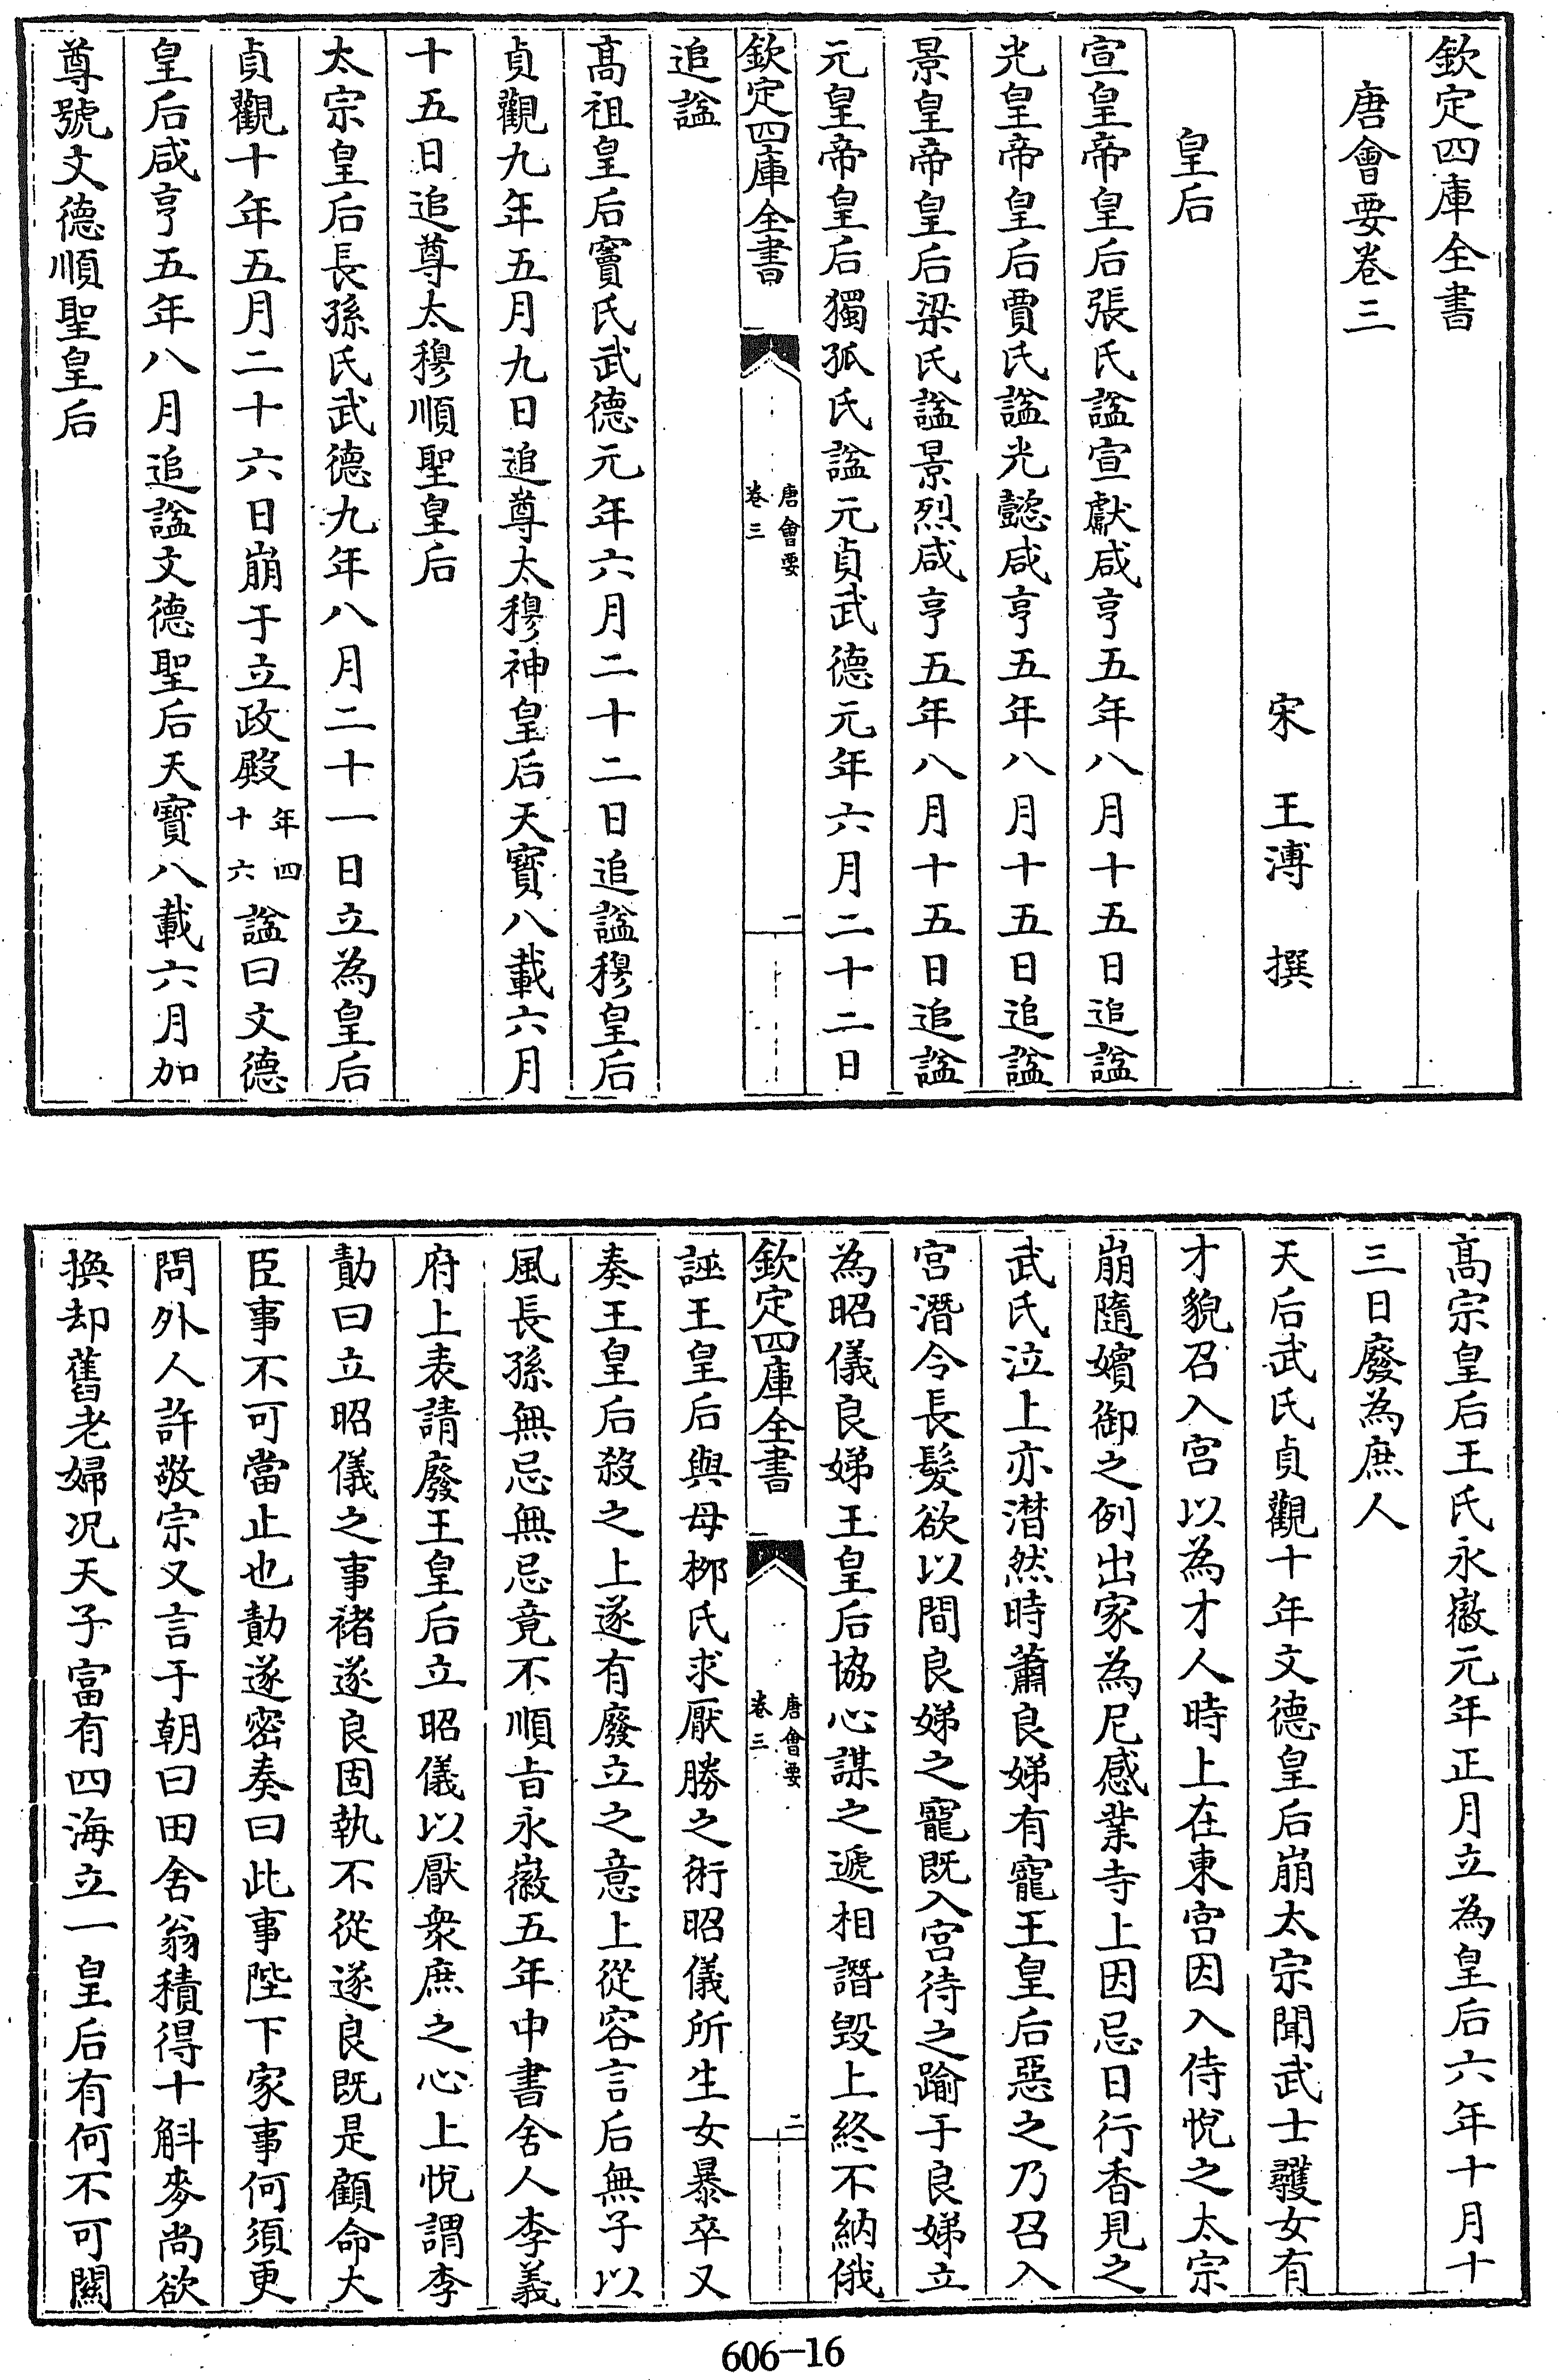 欽定四庫全書
唐會要卷三
宋　王溥　撰
皇后
宣皇帝皇后張氏諡宣獻咸亨五年八月十五日追諡
光皇帝皇后賈氏諡光懿咸亨五年八月十五日追諡
景皇帝皇后梁氏諡景烈咸亨五年八月十五日追諡
元皇帝皇后獨孤氏諡元貞武德元年六月二十二日
欽定四庫全書
唐會要
卷三
一
追諡
髙祖皇后竇氏武德元年六月二十二日追諡穆皇后
貞觀九年五月九日追尊太穆神皇后天寳八載六月
十五日追尊太穆順聖皇后
太宗皇后長孫氏武德九年八月二十一日立為皇后
貞觀十年五月二十六日崩于立政殿年四十六諡曰文德
皇后咸亨五年八月追諡文德聖后天寳八載六月加
尊號文德順聖皇后
髙宗皇后王氏永徽元年正月立為皇后六年十月十
三日廢為庶人
天后武氏貞觀十年文德皇后崩太宗聞武士彠女有
才貌召入宫以為才人時上在東宫因入侍悅之太宗
崩隨嬪御之例出家為尼感業寺上因忌日行香見之
武氏泣上亦潸然時蕭良娣有寵王皇后惡之乃召入
宫潛令長髮欲以間良娣之寵既入宫待之踰于良娣立
為昭儀良娣王皇后協心謀之遞相譖毁上終不納俄
欽定四庫全書
唐會要
卷三
二
誣王皇后與母柳氏求厭勝之術昭儀所生女暴卒又
奏王皇后殺之上遂有廢立之意上從容言后無子以
風長孫無忌無忌竟不順㫖永徽五年中書舍人李義
府上表請廢王皇后立昭儀以厭衆庶之心上悅謂李
勣曰立昭儀之事褚遂良固執不從遂良既是顧命大
臣事不可當止也勣遂密奏曰此事陛下家事何須更
問外人許敬宗又言于朝曰田舍翁積得十斛麥尚欲
換却舊老婦况天子富有四海立一皇后有何不可闗
606-16